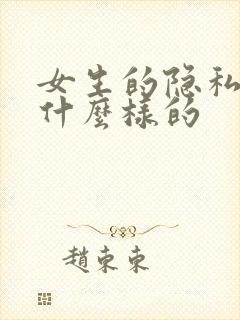 女生的隐私
什麼樣的
趙東東